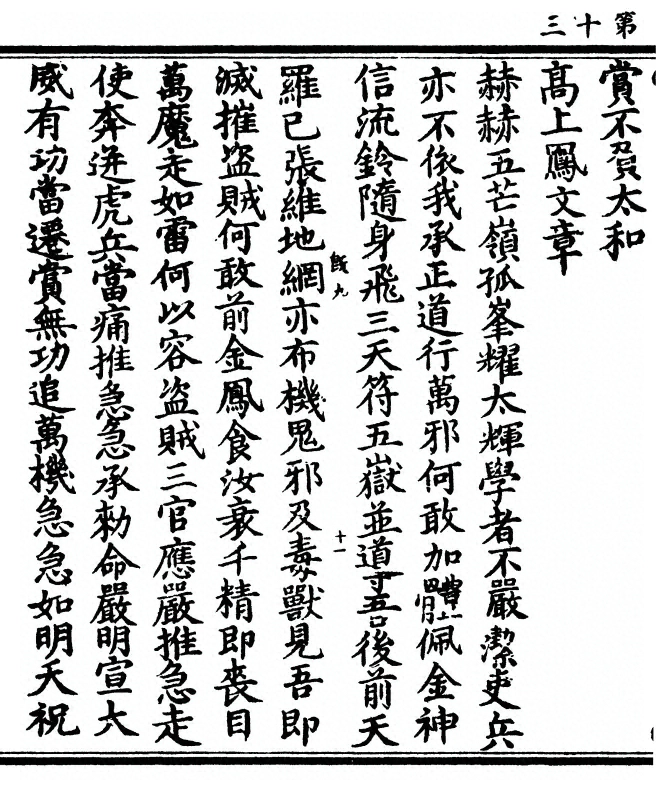 第十三
賞不負太和
高上鳳文章
赫赫五芒嶺孤峯耀太輝學者不嚴潔吏兵
亦不依我承正道行萬邪何敢加體佩金神
信流鈴隨身飛三天符五嶽並導吾後前天
既九
十一
羅已張維地網亦布機鬼邪及毒獸見吾即
滅摧盜賊何敢前金鳳食汝衰千精即喪目
萬魔走如雷何以容盜賊三官應嚴推急走
使奔迸虎兵當痛推急急承勑命嚴明宣六
威有功當遷賞無功追萬機急急如明天祝